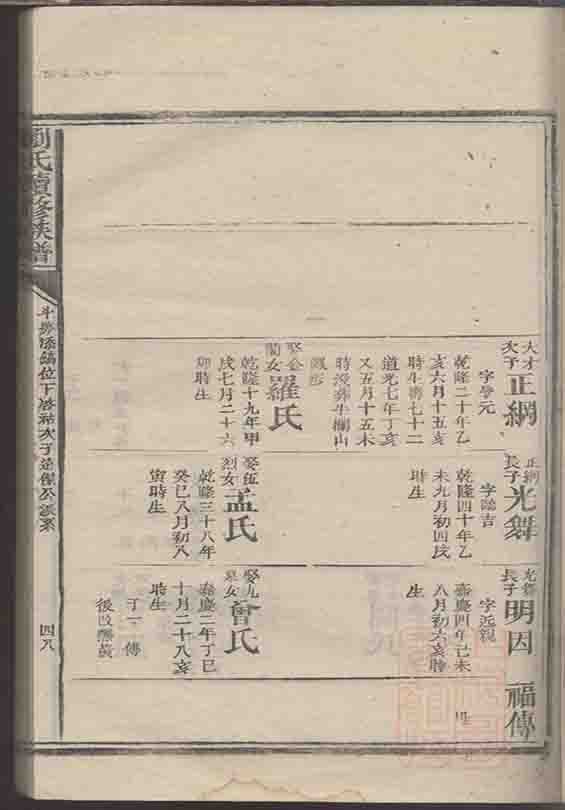 大才次子
正綱
字譽元
乾隆二十年乙
亥六月十五亥
時生壽七十二
道光七年丁亥
又五月十五未
時沒葬牛欄山
娶公蘭女
羅氏
乾隆十九年甲
戌七月二十六
卯時生
正綱長子
光舞
乾隆四十年乙
未九月初四戌
時生
娶伍烈女
孟氏
乾隆三十八年
癸巳八月初八
寅時生
光舞長子
明因
字近親
嘉慶四年己未
八月初六亥時
生
曾氏
嘉慶二年丁巳
十月二十八亥
時生
丁一傳
福傳
劉氏續修族譜
四八